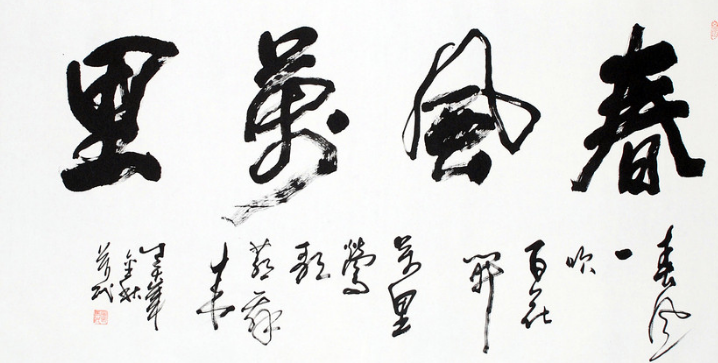 春風萬里
春风
一
吹
百花
開
萬里
鶯
歌
燕舞
来